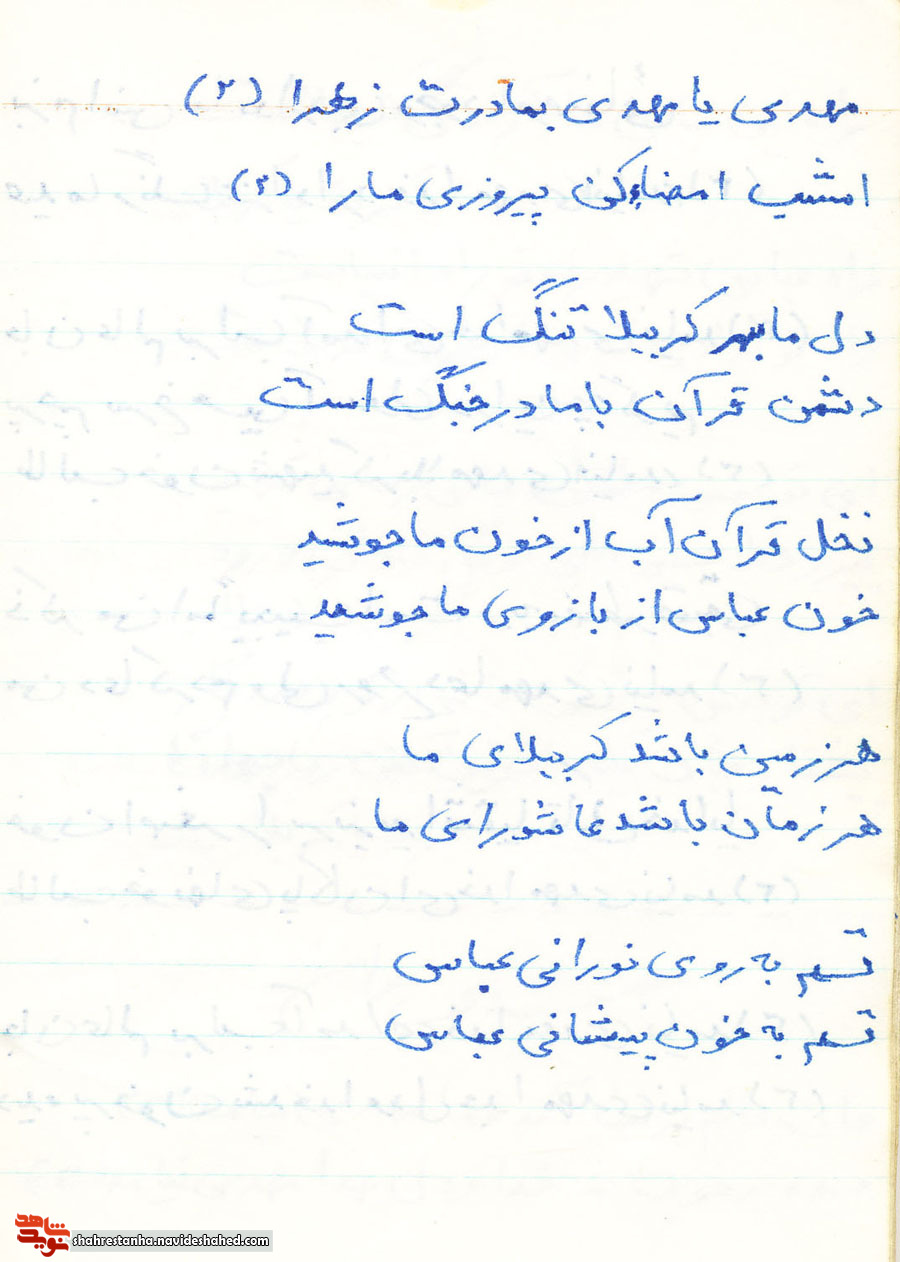 مهدی یا مهدی بمادرت زهرا (۲)
امشب امضاءکن پیروزی مارا (۲)
دل ما بهر کربلا تنگ است
دشمن قرآن باما درجنگ است
نخل قرآن آب ازخون ما جوشید
خون عباس از بازوی ما جوشید
هرزمین باشد کربلای ما
هرزمان باشد عاشورای ما
قسم به روی نورانی عباس
قسم به خون پیشانی عباس
نوید شاهد
shahrestanha.navideshahed.com